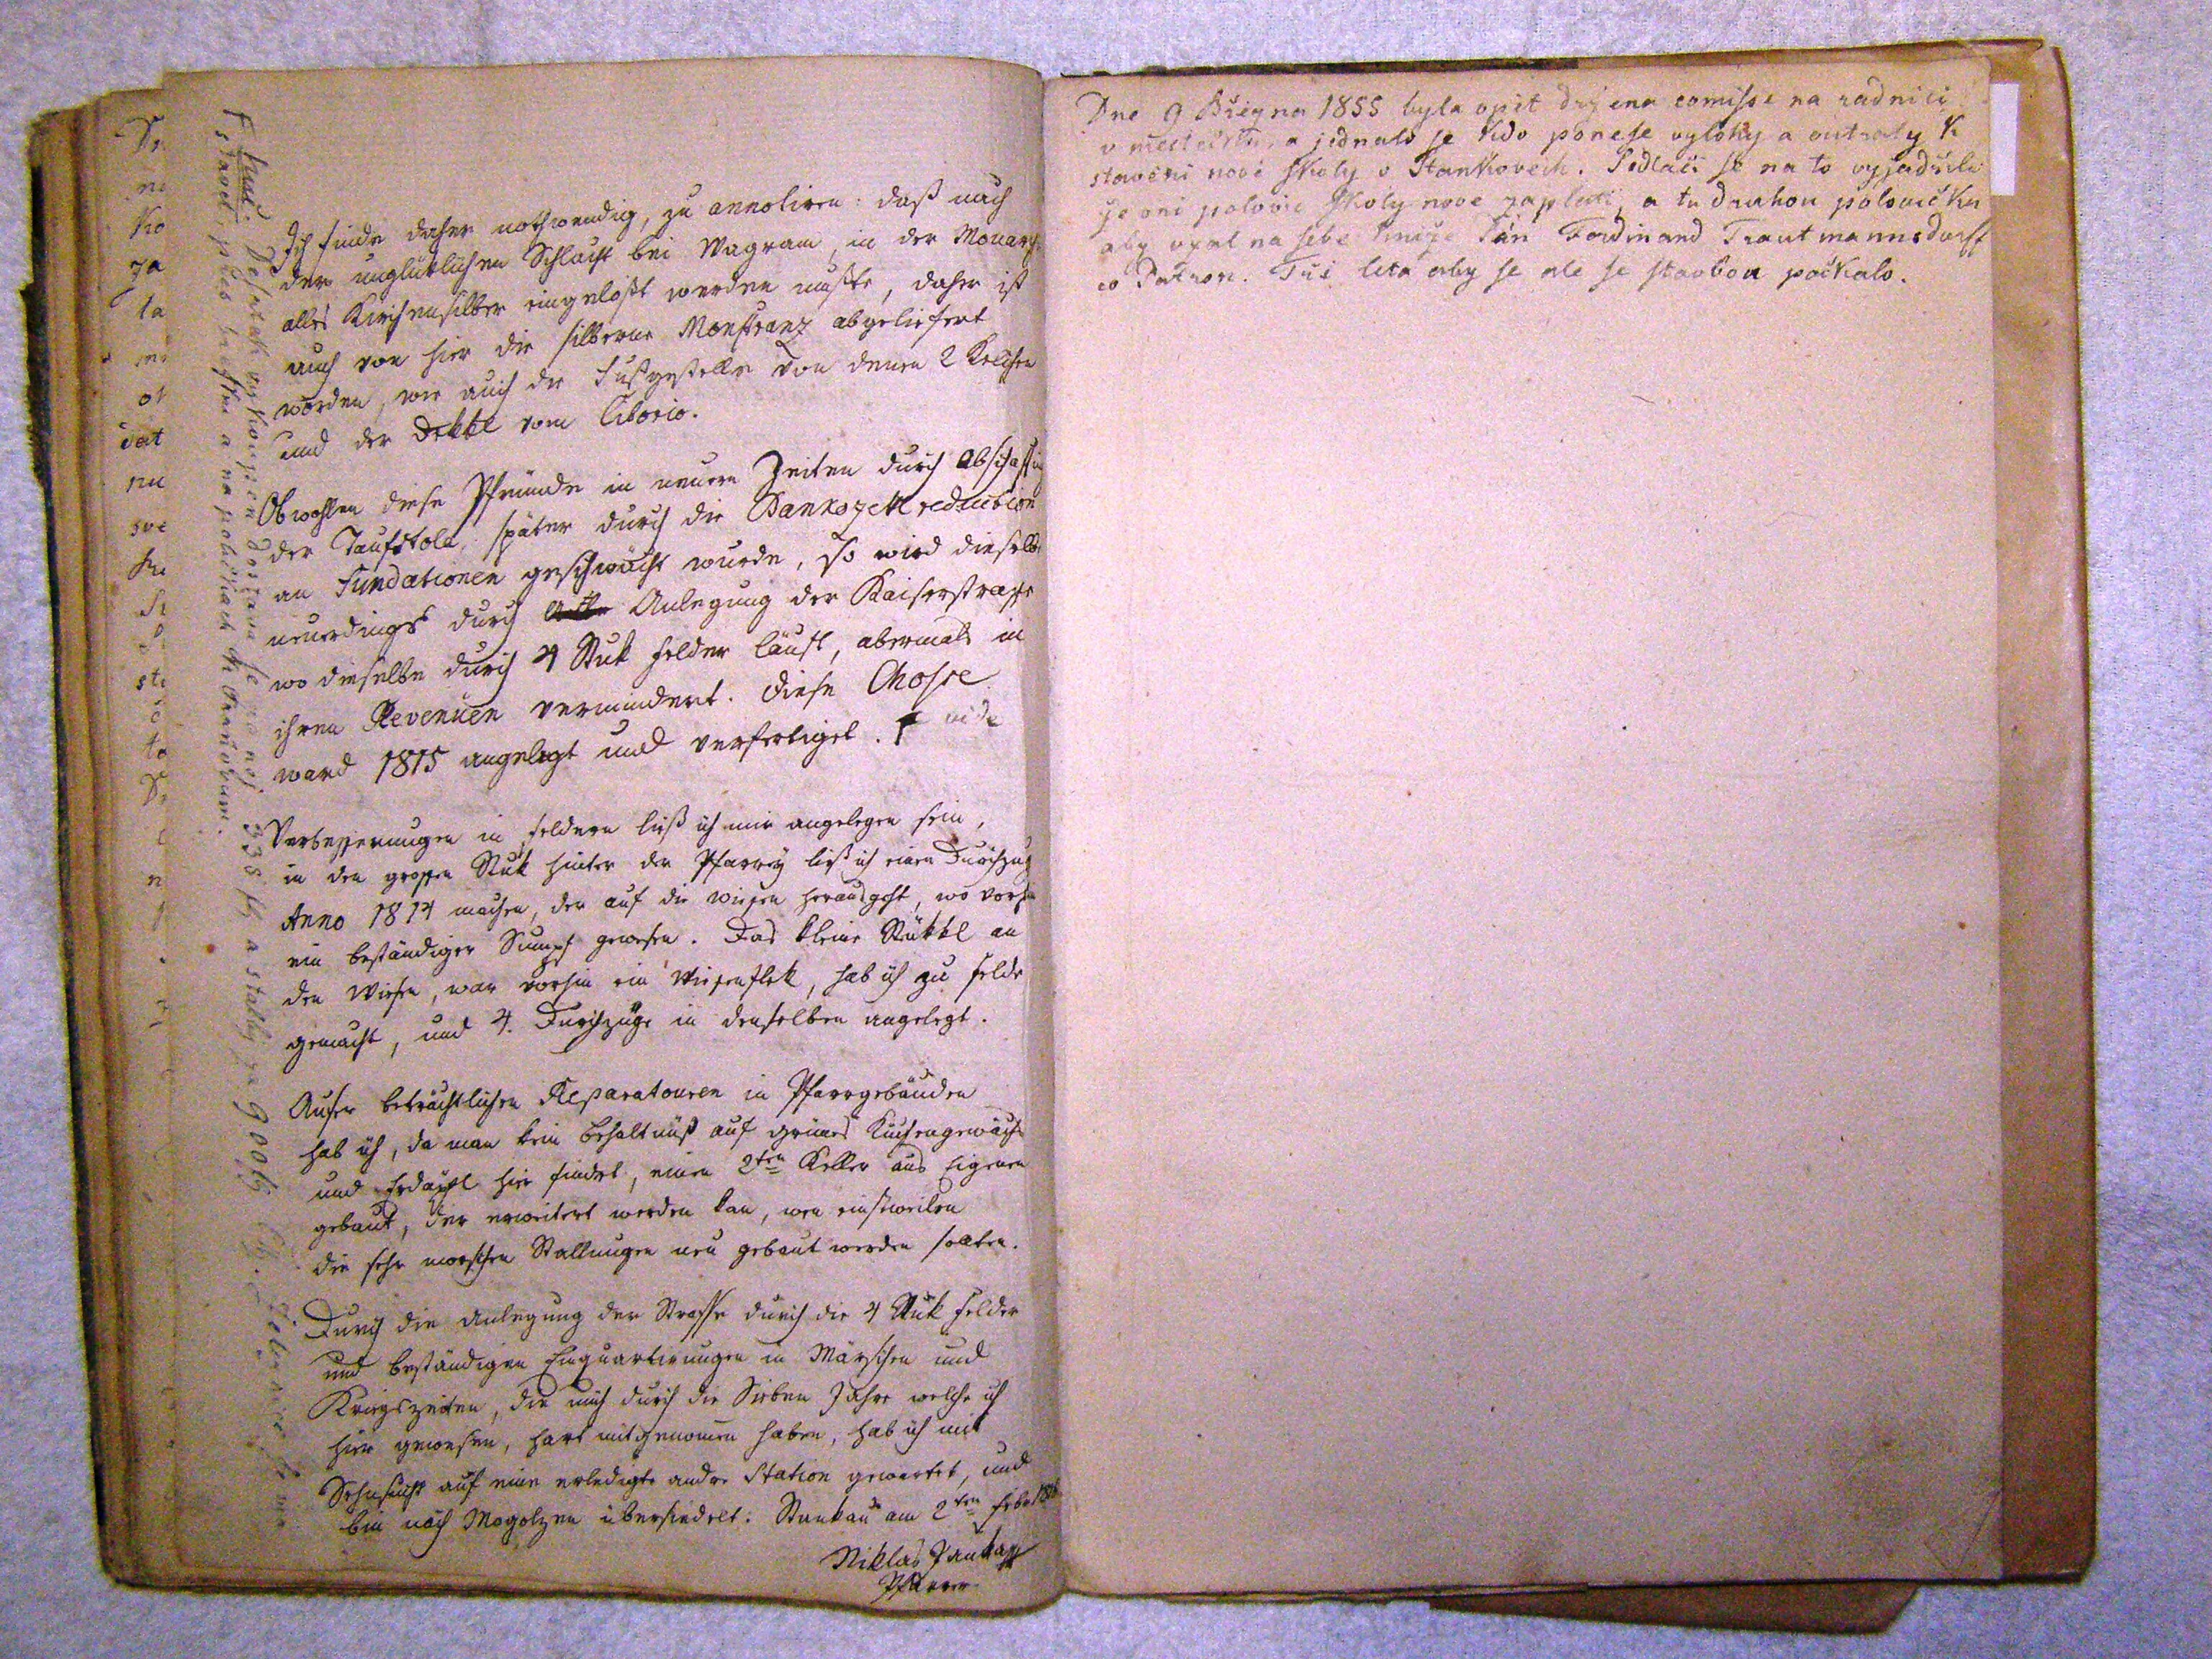 Ich finde daher nothwendig, zu annotiren: daß nach
der unglüklichen Schlacht bei Wagram, in der Monarch
alles Kirchensilber eingelößt werden mußte, daher ist
auch von hier die silberne Monstranz abgeliefert
worden, wie auch die Fußgestelle von denen 2 Kelchen
und der Dekkl vom Ciborio.
Obwohlen diese Pfründe in neuern Zeiten durch Abschaffung
der Taufstola, später durch die Bankozettl reduction
an Fundationen geschwächt wurde, so wird dieselbe
neuerdings durch Anlegung der Kaiserstrasse
wo dieselbe durch 4 Stuk Felder läuft, abermals in
ihren Revenüen vermindert. Diese Chosse
ward 1815 angelegt und verfertiget. vide
Verbesserungen in Feldern ließ ich mir angelegen sein,
in den grossen Stuk hinter der Pfarrey ließ ich einen Durchzug
Anno 1814 machen, der auf die Wiesen herausgeht, wo vorhin
ein beständiger Sumpf gewesen. Das kleine Stükkl an
den Wiesen, war vorhin ein Wiesenflek, hab ich zu Felde
gemacht, und 4. Durchzüge in denselben angelegt.
Auser beträchtlichen Reparatouren in Pfarrgebäuden
hab ich, da man kein Behaltnüß auf grünes Küchengewächs
und Erdäpfl hier findet, einen 2ten Keller aus Eigenen
gebaut, der erweitert werden kan, wen einsweilen
die sehr morschen Stallungen neu gebaut werden sollten.
Durch die Anlegung der Strasse durch die 4 Stuk Felder
und beständigen Einquartirungen in Märschen und
Kriegszeiten, die mich durch die Sieben Jahre welche ich
hier gewesen, hart mitgenomen haben, hab ich mit
Sehnsucht auf eine erledigte andre Station gewartet, und
bin nach Mogolzen übersiedelt: Stankau am 2ten Febr
Niklas Jankay
Pfarrer
Dne 9 Března 1855 byla opět držena comisse na radnici
v městečku, a jednalo se kdo ponese výlohy a outraty k
stavění nové školy v Stankovech. Sedláci se na to vyjádřili
že oni polovic školy nové zaplatí, a tu druhou polovičku
aby vzal na sebe kníže Pán Ferdinand Trautmannsdorff
co Patron. Tři léta aby se ale se stavbou počkalo.